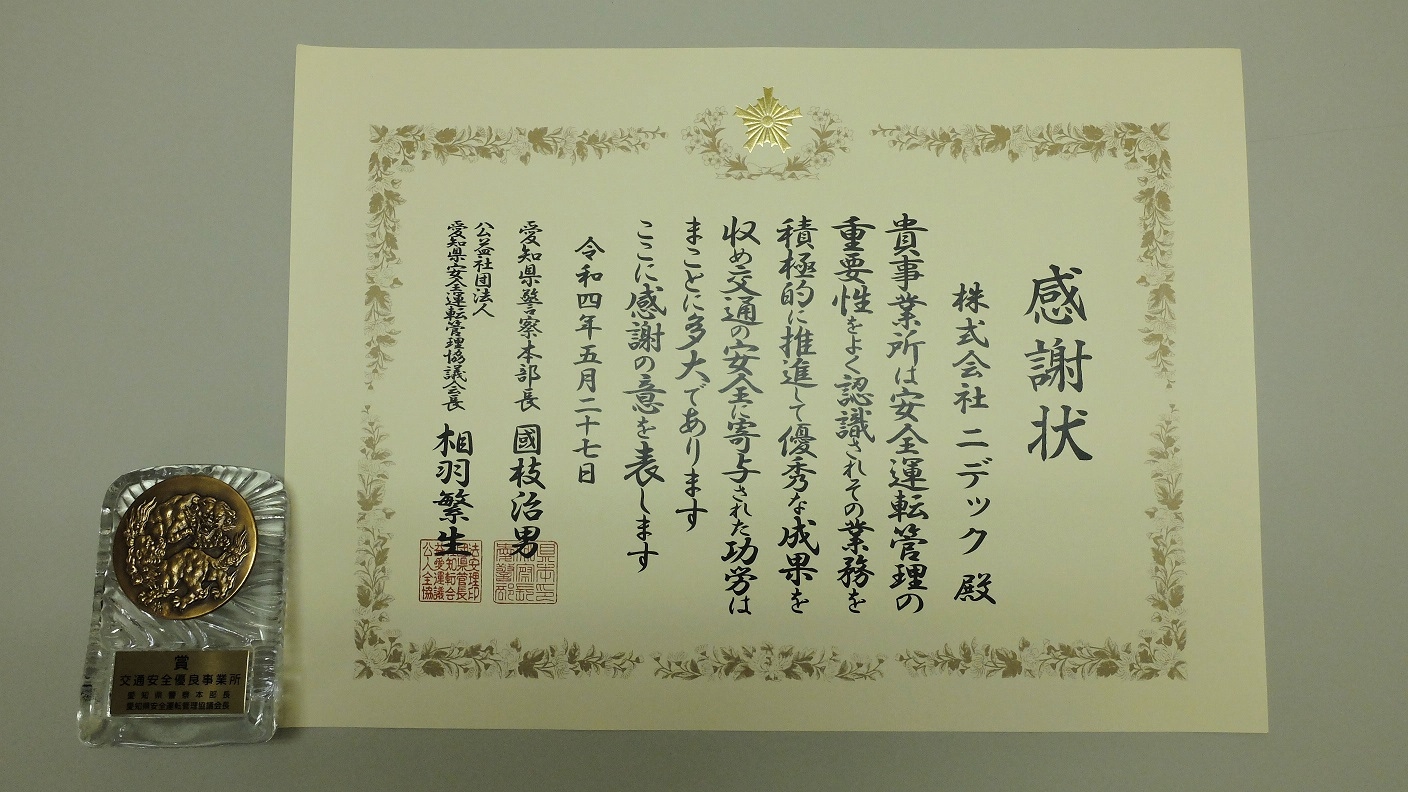 感謝状
株式会社 ニデック 殿
貴事業所は安全運転管理の
重要性をよく認識されその業務を
積極的に推進して優秀な成果を
収め交通の安全に寄与された功労は
まことに多大であります
ここに感謝の意を表します
令和四年五月二十七日
愛知県警察本部長 國枝治男
公益社団法人
愛知県安全運転管理協議会長 相羽繁生
賞
交通安全優良事業所
愛知県警察本部長
愛知県安全運転管理協議会長